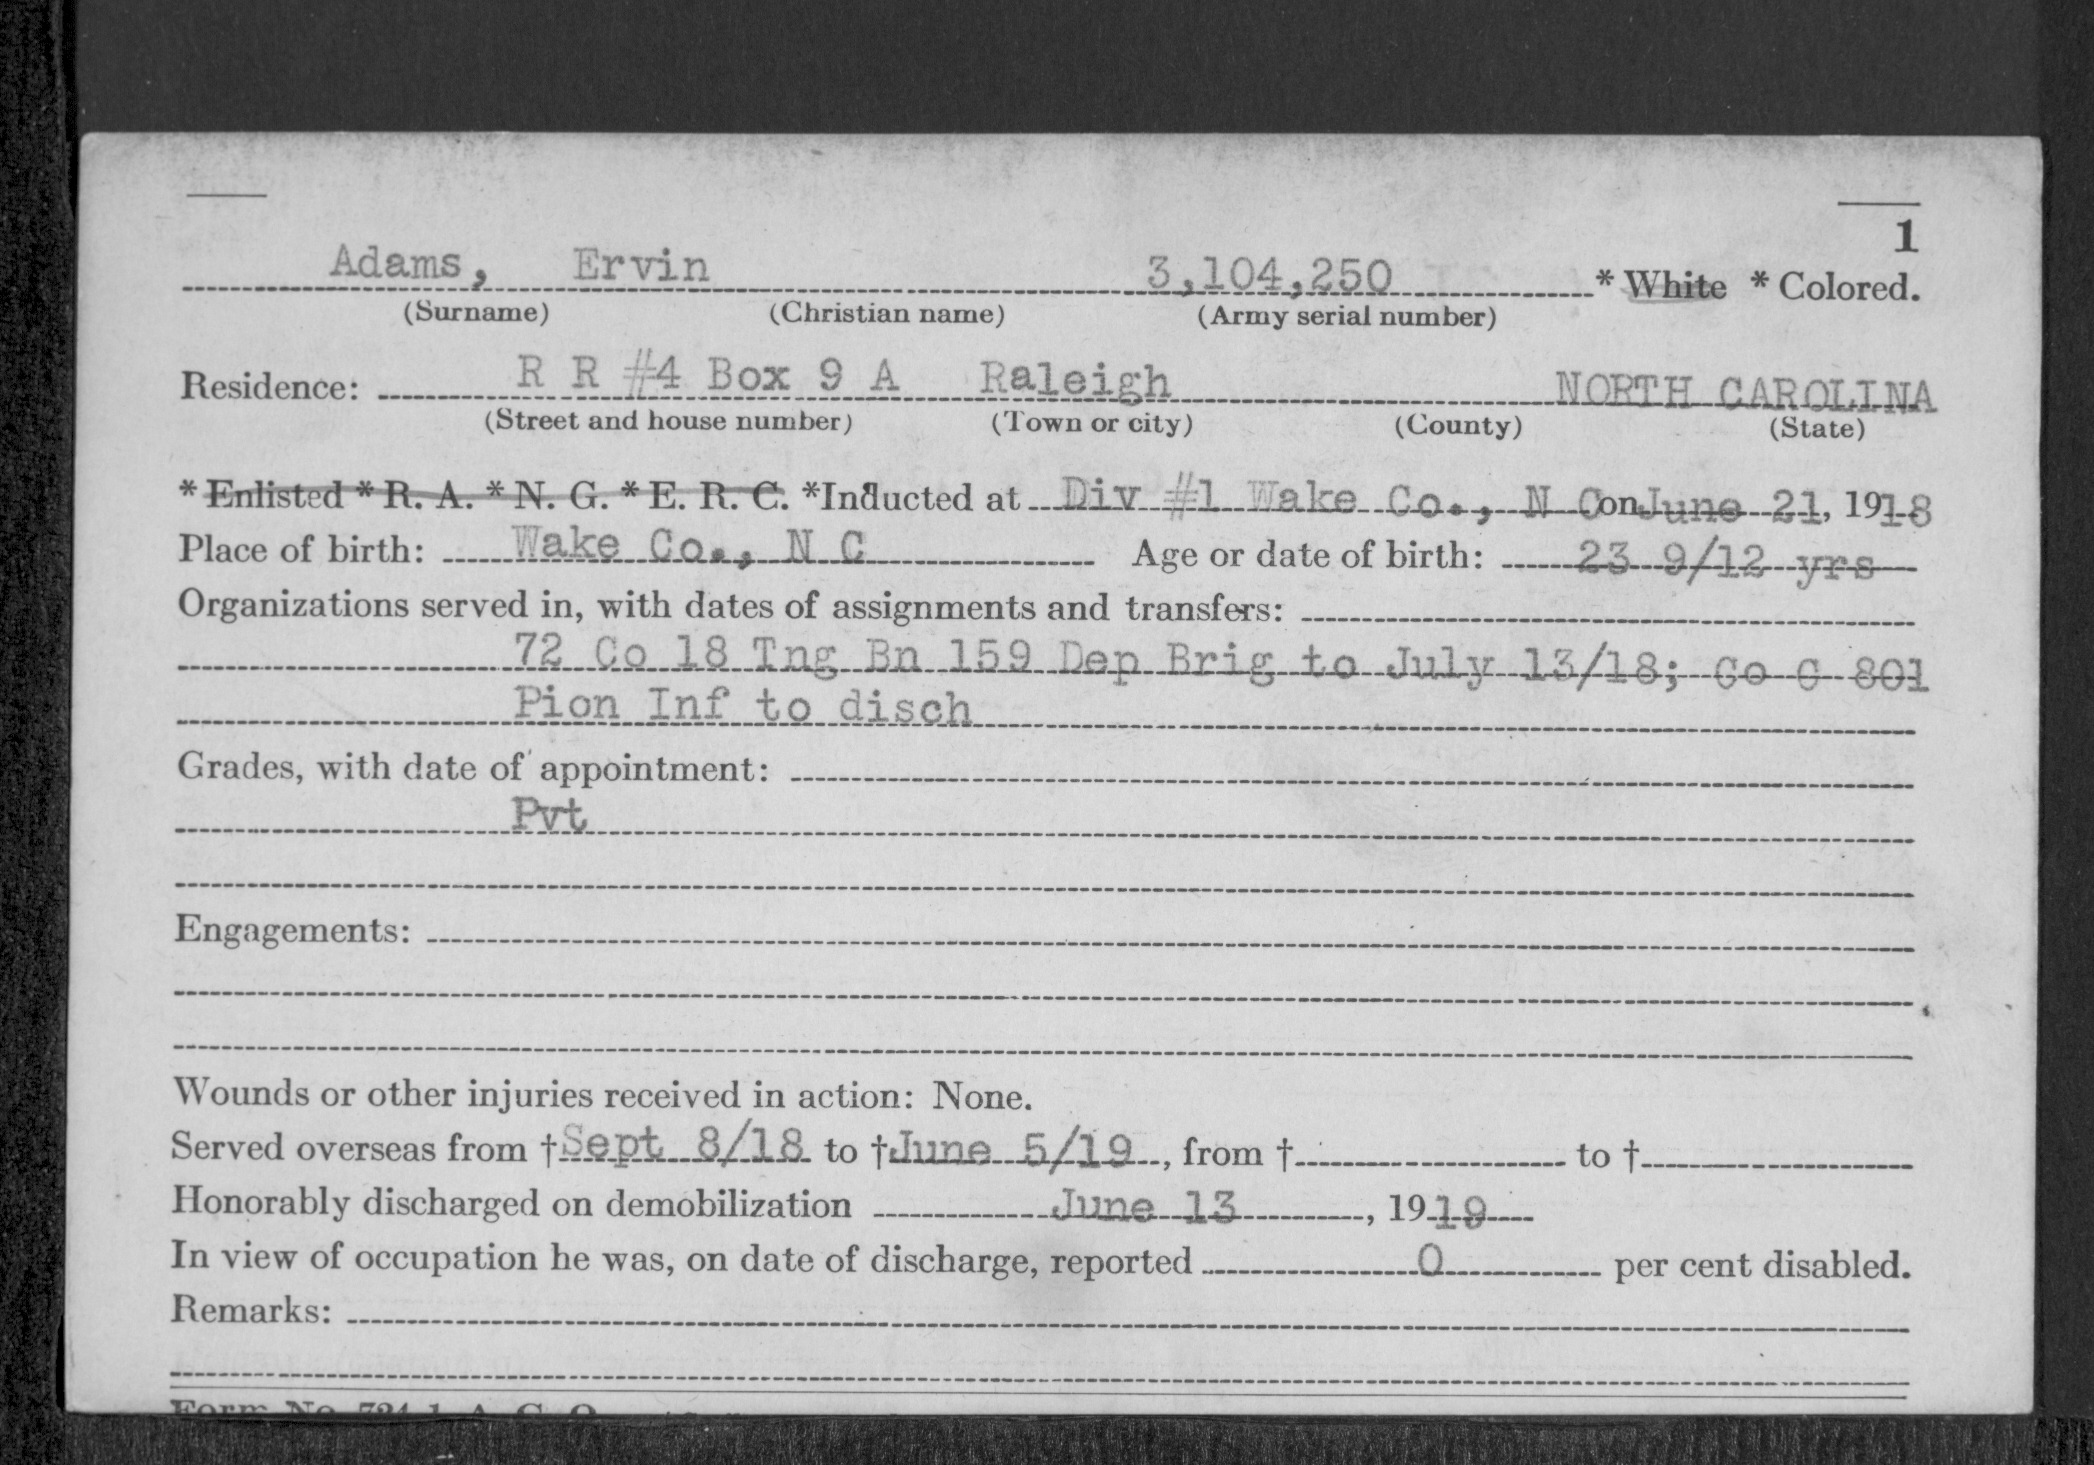 1
Adams, Ervin 3,104,250 * White * Colored.
(Surname) (Christian name) (Army serial number)
Residence: R R #4 Box 9 A Raleigh NORTH CAROLINA
(Street and house number) (Town or city) (County) (State)
* Enlisted * R. A. * N. G. * E. R. C. *Inducted at Div #1 Wake Co., N C on June 21, 1918
Place of birth: Wake Co., N C Age or date of birth: 23 9/12 yrs
Organizations served in, with dates of assignments and transfers:
72 Co 18 Tng Bn 159 Dep Brig to July 13/18; Co C 801
Pion Inf to disch
Grades, with date of appointment:
Pvt
Engagements:
Wounds or other injuries received in action: None.
Served overseas from †Sept 8/18 to †June 5/19, from † to †
Honorably discharged on demobilization June 13, 1919
In view of occupation he was, on date of discharge, reported 0 per cent disabled.
Remarks:
Form No. 724-1, A. G. O.